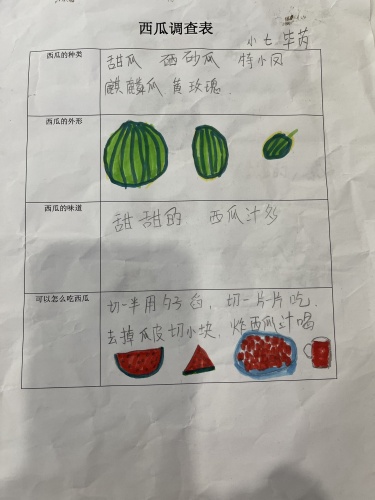 西瓜调查表
小七 毕芮
西瓜的种类
甜瓜 硒砂瓜 特小凤
麒麟瓜 黄玫瑰.
西瓜的外形
西瓜的味道
甜甜的 西瓜汁多
可以怎么吃西瓜
切一半用勺子舀,切一片一片吃.
去掉瓜皮切小块,炸西瓜汁喝